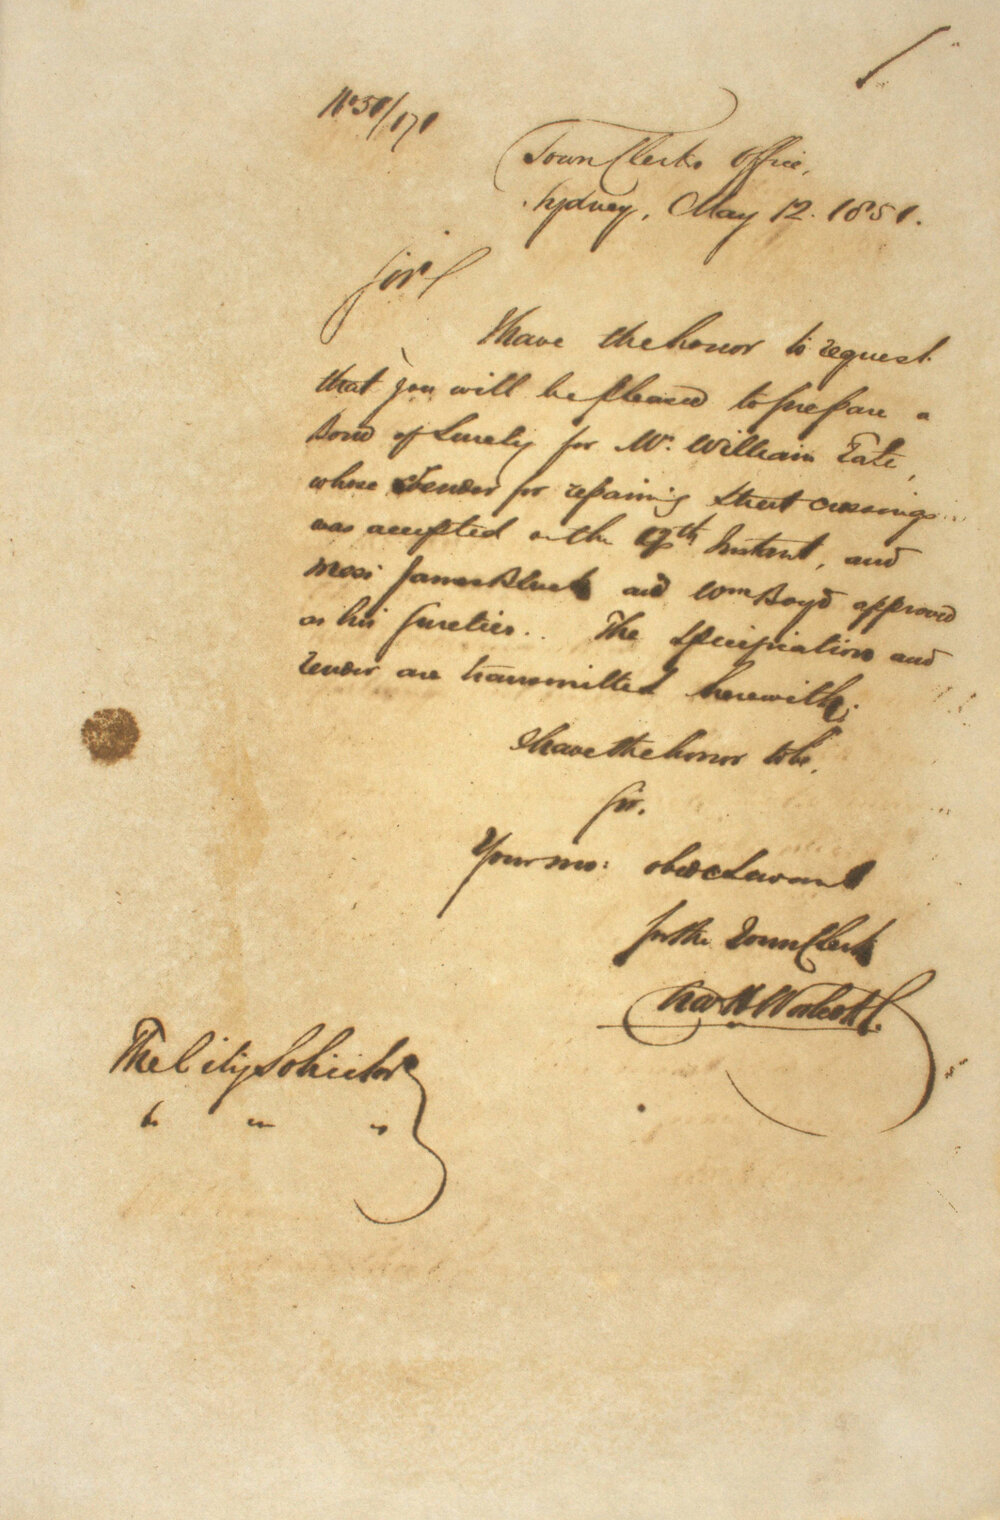 No 51/171
Town Clerks Office,
Sydney, May 12. 1851.
Sir
I have the honor to request
that you will be pleased to prepare a
Bond of Surety for Mr. William Tate,
whose Tender for repairing Street crossings
was accepted on the Instant, and
Messrs James and Wm Boyd approved
as his Sureties. The Specification and
Tender are transmitted herewith.
I have the honor to be,
Sir.
Your mo: obedt Servant
for the Town Clerk
Chas H Woolcott
The City Solicitor